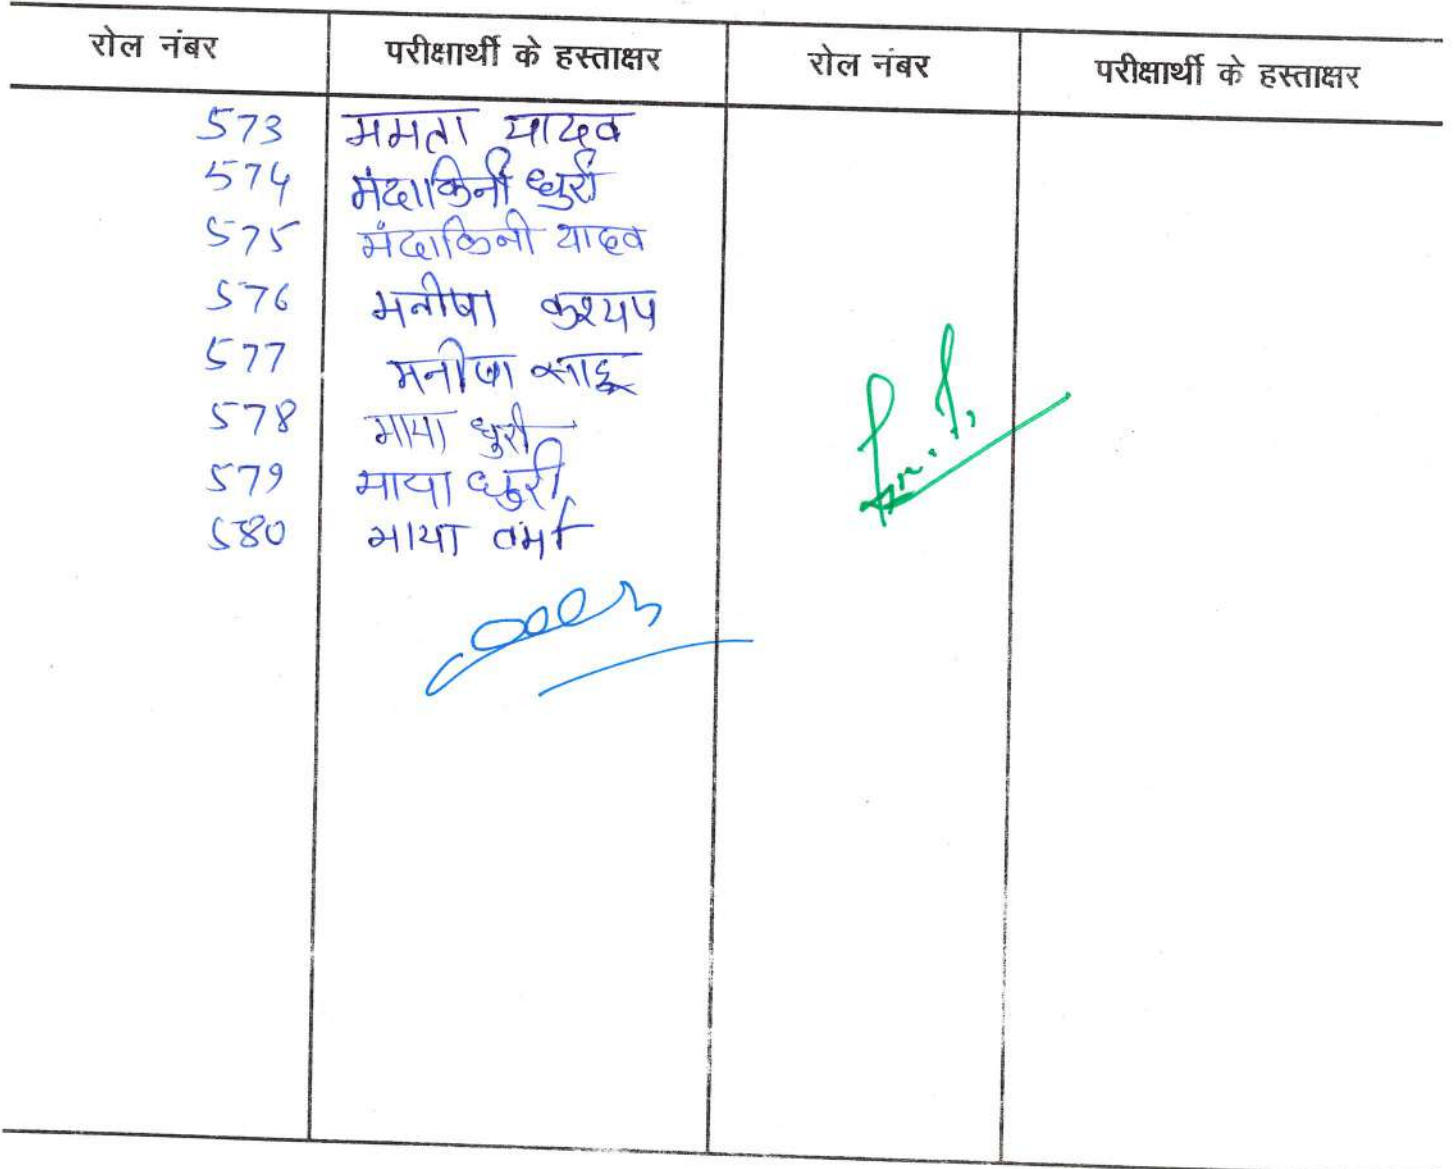 रोल नंबर परीक्षार्थी के हस्ताक्षर रोल नंबर परीक्षार्थी के हस्ताक्षर
573 ममता यादव
574 मंदाकिनी धुरी
575 मंदाकिनी यादव
576 मनीषा कश्यप
577 मनीषा साहू
578 माया धुरी
579 माया धुरी
580 माया वर्मा